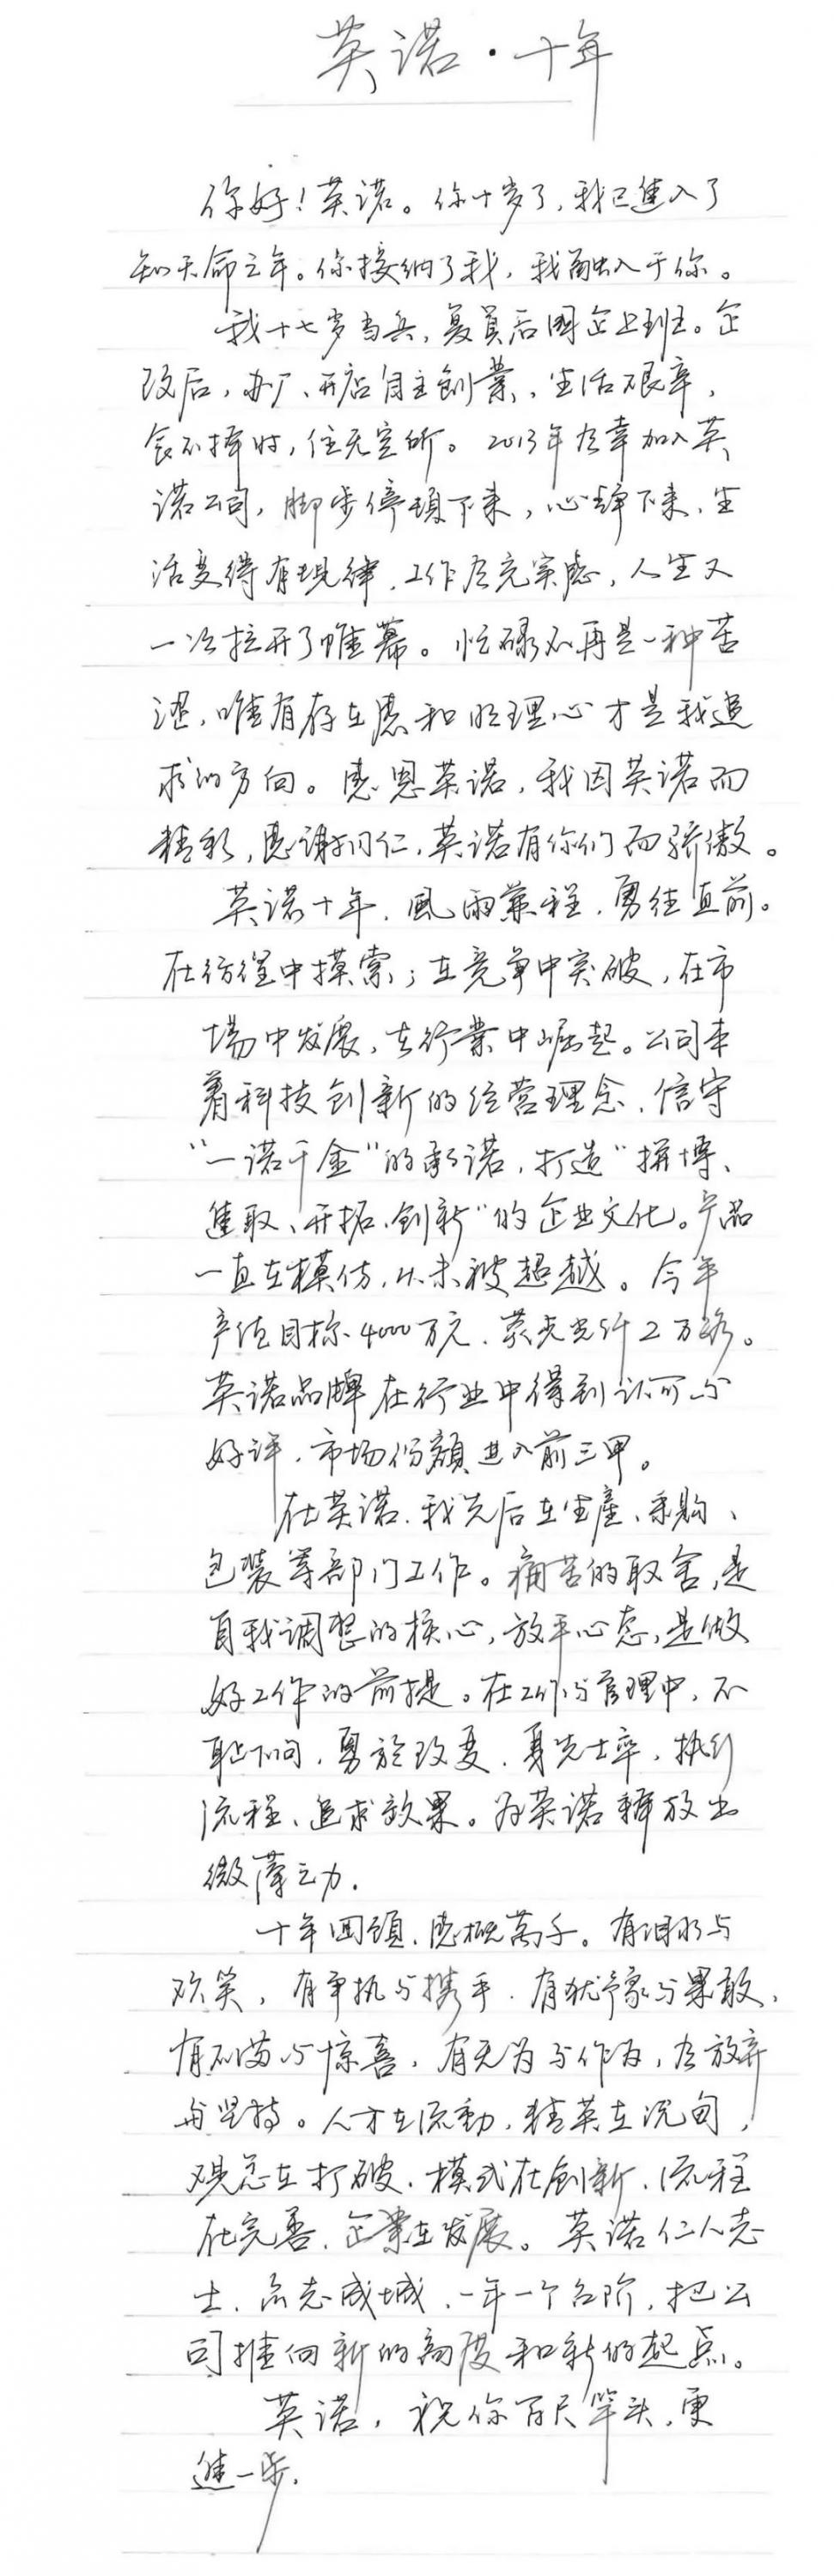 英诺·十年
你好！英诺。你十岁了，我已進入了
知天命之年。你接纳了我，我融入于你。
我十七岁当兵，复員后国企上班。企
改后，办厂、开店自主创業，生活艰辛，
食不择时，住无定所。2013年有幸加入英
诺公司，脚步停頓下来，心静下来，生
活变得有規律，工作有充実感，人生又
一次拉开了帷幕。忙碌不再是一种苦
涩，唯有存在感和同理心才是我追
求的方向。感恩英诺，我因英诺而
精彩，感謝同仁，英诺有你们而骄傲。
英诺十年，風雨兼程，勇往直前。
在彷徨中摸索；在竞争中突破，在市
場中发展，在行業中崛起。公司本
着科技创新的经营理念，信守
“一诺千金”的承诺，打造“拼博、
進取、开拓、创新”的企业文化。产品
一直在模仿，从未被超越。今年
产值目标4000万元，荧光光纤2万路。
英诺品牌在行业中得到认可与
好评，市场份額进入前三甲。
在英诺，我先后在生產、采购、
包装等部门工作。痛苦的取舍，是
自我调整的核心，放平心态，是做
好工作的前提。在工作与管理中，不
耻下问，勇於改变，身先士卒，执行
流程、追求效果。为英诺释放出
微薄之力。
十年回頭，感概萬千。有泪水与
欢笑，有争执与携手，有犹豫与果敢，
有不满与惊喜，有无为与作为，有放弃
与坚持。人才在流動，精英在沉甸，
观念在打破，模式在创新，流程
在完善，企業在发展。英诺仁人志
士，众志成城，一年一个台阶，把公
司推向新的高度和新的起点。
英诺，祝你百尺竿头，更
進一步。